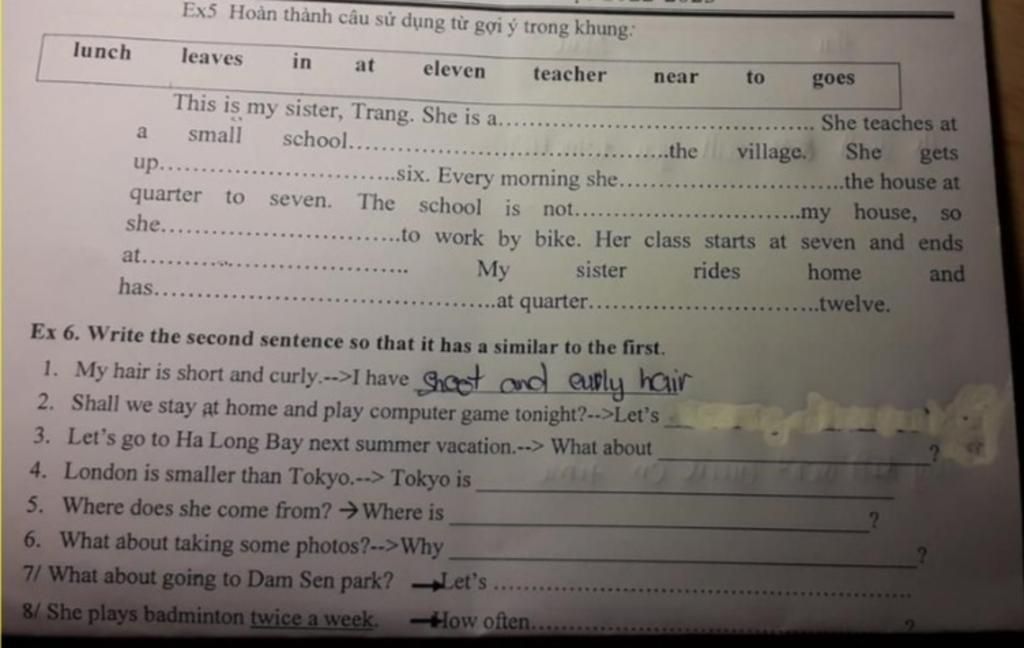 Ex5 Hoàn thành câu sử dụng từ gợi ý trong khung:
lunch leaves in at eleven teacher near to goes
This is my sister, Trang. She is a........................................ She teaches at
a small school........................................the village. She gets
up..............................six. Every morning she..............................the house at
quarter to seven. The school is not..............................my house, so
she..............................to work by bike. Her class starts at seven and ends
at.................................. My sister rides home and
has............................................at quarter..............................twelve.
Ex 6. Write the second sentence so that it has a similar to the first.
1. My hair is short and curly.-->I have short and curly hair
2. Shall we stay at home and play computer game tonight?-->Let's ____
3. Let's go to Ha Long Bay next summer vacation.--> What about ____________________?
4. London is smaller than Tokyo.--> Tokyo is ______________________________
5. Where does she come from? →Where is ______________________________?
6. What about taking some photos?-->Why ______________________________?
7/ What about going to Dam Sen park? →Let's ..................................................
8/ She plays badminton twice a week. →How often..................................................?